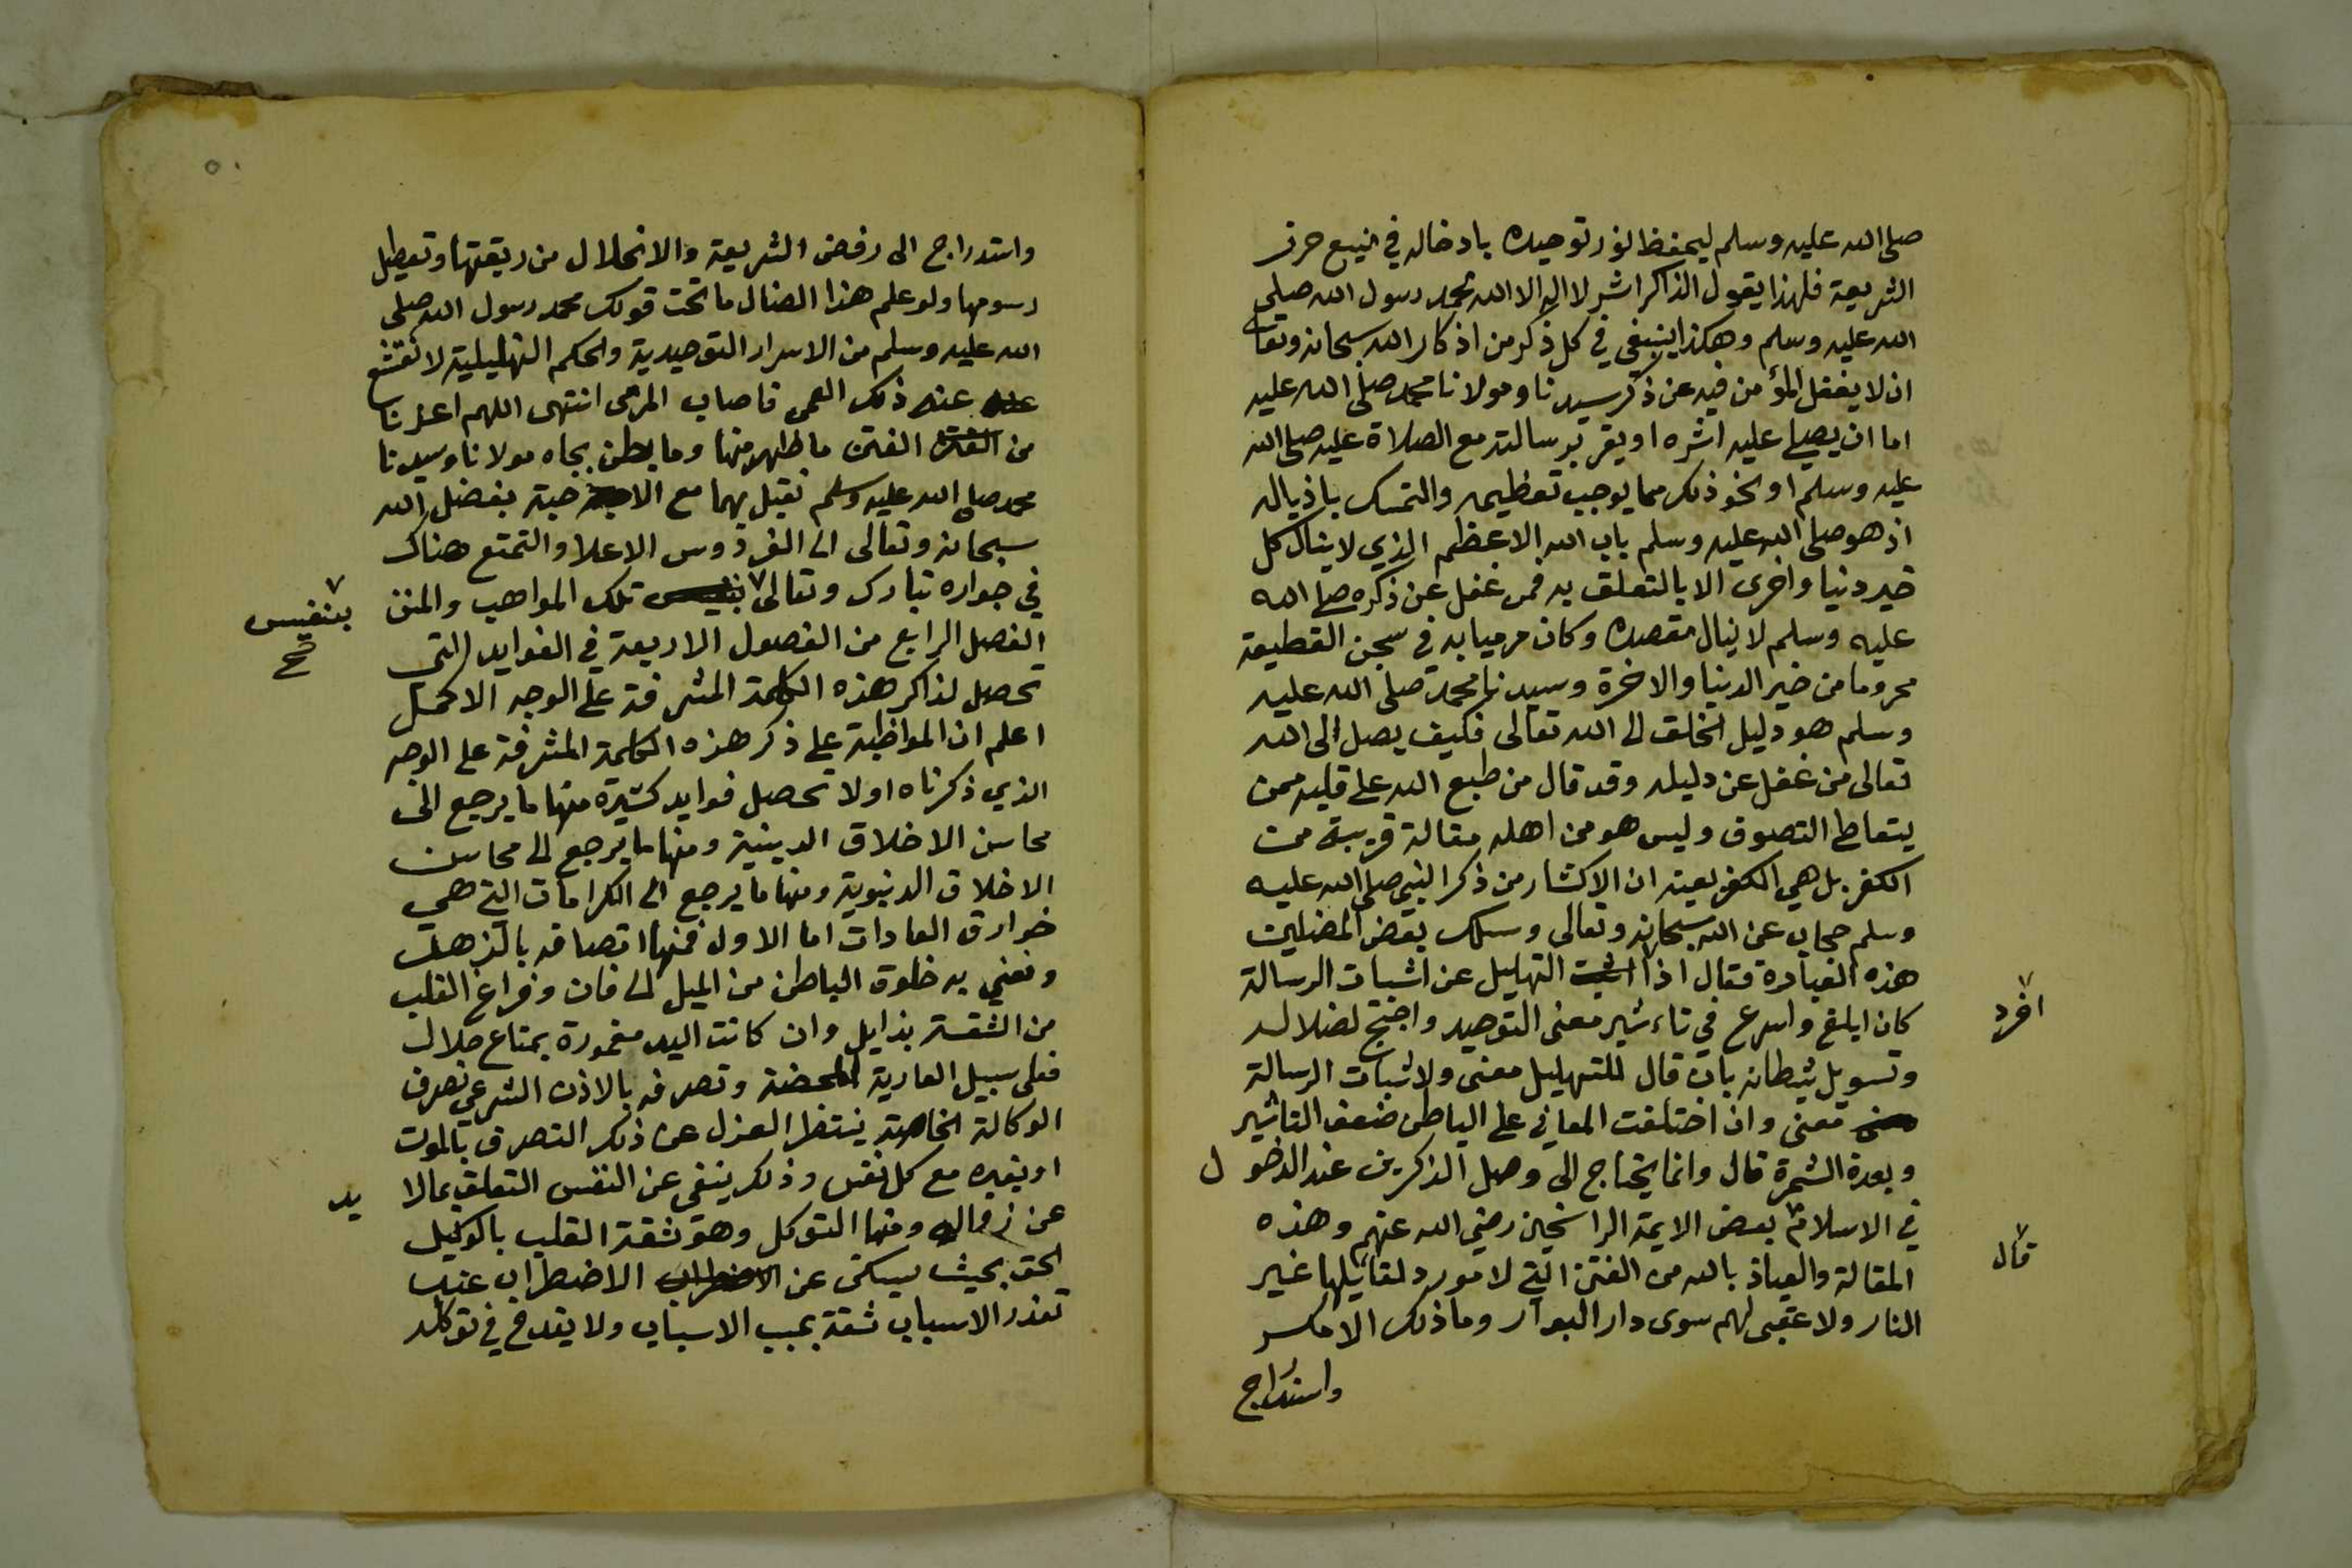 صلى الله عليه وسلم ليحفظ نور توحيده بادخاله في منيع حرز
الشريعة فلهذا يقول الذاكر اثر لا اله الا الله محمد رسول الله صلى
الله عليه وسلم وهكذا ينبغي في كل ذكر من اذكار الله سبحانه وتعالى
ان لا يغفل المؤمن فيه عن ذكر سيدنا ومولانا محمد صلى الله عليه
اما ان يصلي عليه اثره او يقر برسالته مع الصلاة عليه صلى الله
عليه وسلم او نحو ذلك مما يوجب تعظيمه والتمسك باذياله
اذ هو صلى الله عليه وسلم باب الله الاعظم الذي لا ينال كل
خير دنيا واخرى الا بالتعلق به فمن غفل عن ذكره صلى الله
عليه وسلم لا ينال مقصده وكان مرميا به في سجن القطيعة
محروما من خير الدنيا والاخرة وسيدنا محمد صلى الله عليه
وسلم هو دليل الخلق الى الله تعالى فكيف يصل الى الله
تعالى من غفل عن دليله وقد قال من طبع الله على قلبه ممن
يتعاطى التصوف وليس هو من اهله مقالة قريبة من
الكفر بل هي الكفر بعينه ان الاكثار من ذكر النبي صلى الله عليه
وسلم حجاب عن الله سبحانه وتعالى وسلك بعض المضلين
هذه العبادرة فقال اذا التهليل عن اثبات الرسالة
افرد
كان ابلغ واسرع في تاءثير معنى التوحيد واحتج لضلاله
وتسويل شيطانه بان قال للتهليل معنى ولاثبات الرسالة
معنى وان اختلفت المعاني على الباطن ضعف التاثير
وبعدة الثمرة قال وانما يحتاج الى وصل الذاكرين عند الدخول
في الاسلام بعض الايمة الراسخين رضي الله عنهم وهذه
قال
المقالة والعياذ بالله من الفتن التي لا مورد لقائلها غير
النار ولا عقبى لهم سوى دار البوار وما ذلك الا مكر
واستدراج
واستدراج الى رفض الشريعة والانحلال من ربقتها وتعطيل
رسومها ولو علم هذا الضال ما تحت قولك محمد رسول الله صلى
الله عليه وسلم من الاسرار التوحيدية والحكم التهليلية لانقشع
عنه ذلك العمى فاصاب المرمى انتهى اللهم اعذنا
من الفتن ما ظهر منها وما بطن بجاه مولانا وسيدنا
محمد صلى الله عليه وسلم نقبل بهما مع الاحبة بفضل الله
سبحانه وتعالى الى الفردوس الاعلا والتمتع هناك
في جواره تبارك وتعالى تلك المواهب والمنن
بنفيس
صح
الفصل الرابع من الفصول الاربعة في الفوايد التي
تحصل لذاكر هذه الكلمة المشرفة على الوجه الاكمل
اعلم ان المواظبة على ذكر هذه الكلمة المشرفة على الوجه
الذي ذكرناه اولا تحصل فوايد كثيرة منها ما يرجع الى
محاسن الاخلاق الدينية ومنها ما يرجع الى محاسن
الاخلاق الدنيوية ومنها ما يرجع الى الكرامات التي هي
خوارق العادات اما الاول فمنها اتصافه بالزهد
ونعني به خلوة الباطن من الميل الى فان وفراغ القلب
من الثقة بزايل وان كانت اليد مغمورة بمتاع حلال
فعلى سبيل العارية المحضة وتصرفه بالاذن الشرعي تصرف
الوكالة الخاصة ينتظر العزل عن ذلك التصرف بالموت
او بغيره مع كل نفس وذلك ينفى عن النفس التعلق بما لا
بد
عن زواله ومنها التوكل وهو ثقة القلب بالوكيل
الحق بحيث يسكن عن الاضطراب عند
تعذر الاسباب ثقة بمسبب الاسباب ولا يقدح في توكله